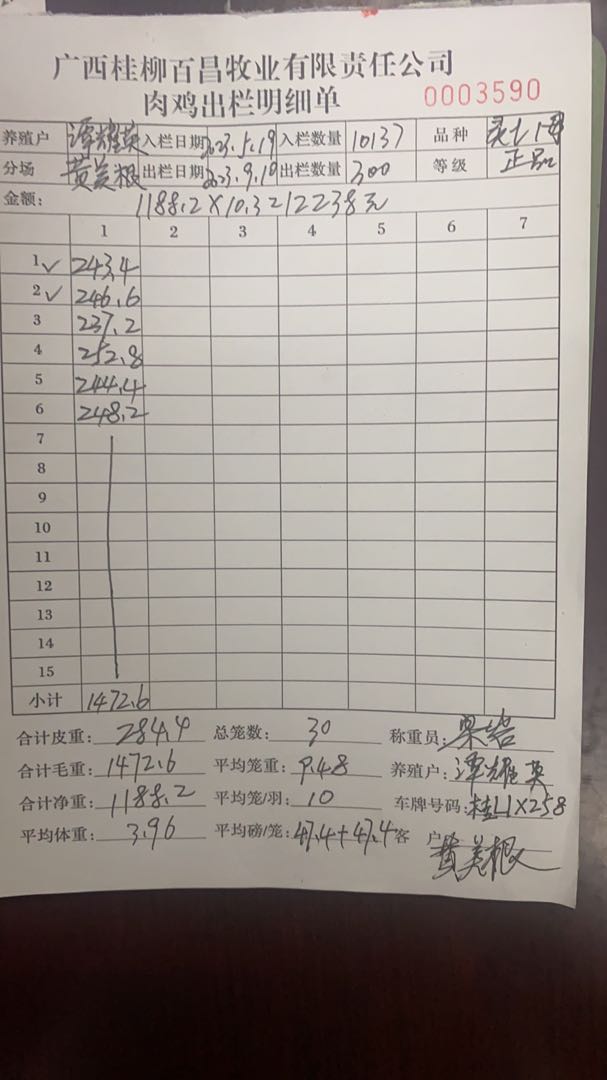 广西桂柳百昌牧业有限责任公司
肉鸡出栏明细单 0003590
养殖户 谭耀英 入栏日期 2023.5.19 入栏数量 10137 品种
分场 黄美根 出栏日期 2023.9.10 出栏数量 300 等级 正品
金额: 1188.2×10.3=12238元
1 2 3 4 5 6 7
1 ✓ 243.4
2 ✓ 246.6
3 237.2
4 252.8
5 244.4
6 248.2
7
8
9
10
11
12
13
14
15
小计 1472.6
合计皮重: 284.4 总笼数: 30 称重员:
合计毛重: 1472.6 平均笼重: 9.48 养殖户: 谭耀英
合计净重: 1188.2 平均笼/羽: 10 车牌号码: 桂L1X258
平均体重: 3.96 平均磅/笼: 47.4+47.4 客户: 黄美根